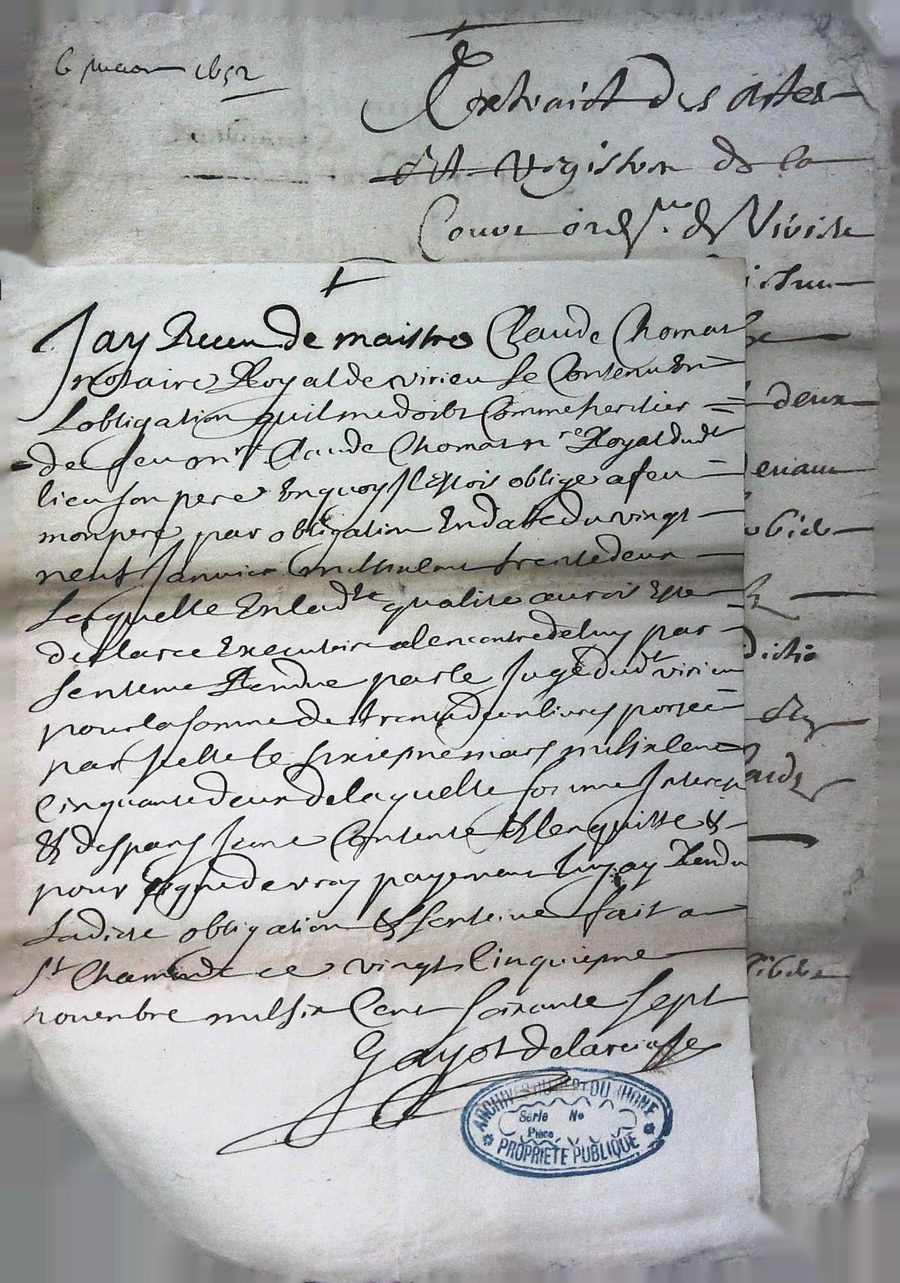 6 mars 1652
Extraict des actes
et registres de la
Cour ord.re de Virieu
deux
Jay Receu de maistre Claude Chomat
notaire Royal de virieu le Contenu En
Lobligation quil me doibt Comme heritier
de feu mr Claude Chomat nre Royal dudt
lieu son pere En quoy Il estoit oblige a feu
mon pere par obligation En datte du vingt
neuf Janvier mil six cent trente deux
Laquelle En ladte qualite auroit Este
desclaree Executoire alencontre de luy par
sentence Rendue par le Juge dudt virieu
pour la somme de trente deux livres portee
par Icelle le sixiesme mars mil six cent
Cinquante deux de laquelle somme Interestz
& despans Je me Contente & len quitte &
pour signe de vray payement luy ay Rendu
Ladicte obligation & sentence fait a
St Chamond ce vingt Cinquiesme
novembre mil six Cent soixante sept
Gayot delarciasse
ARCHIVES DU DEPT DU RHONE
Série No
Pièce
PROPRIETE PUBLIQUE